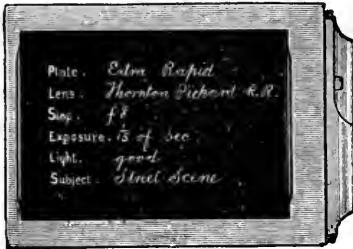 Plate. Extra Rapid
Lens. Thornton Pickard R.R.
Stop. f8
Exposure. 1/15 of Sec
Light. good
Subject. Street Scene